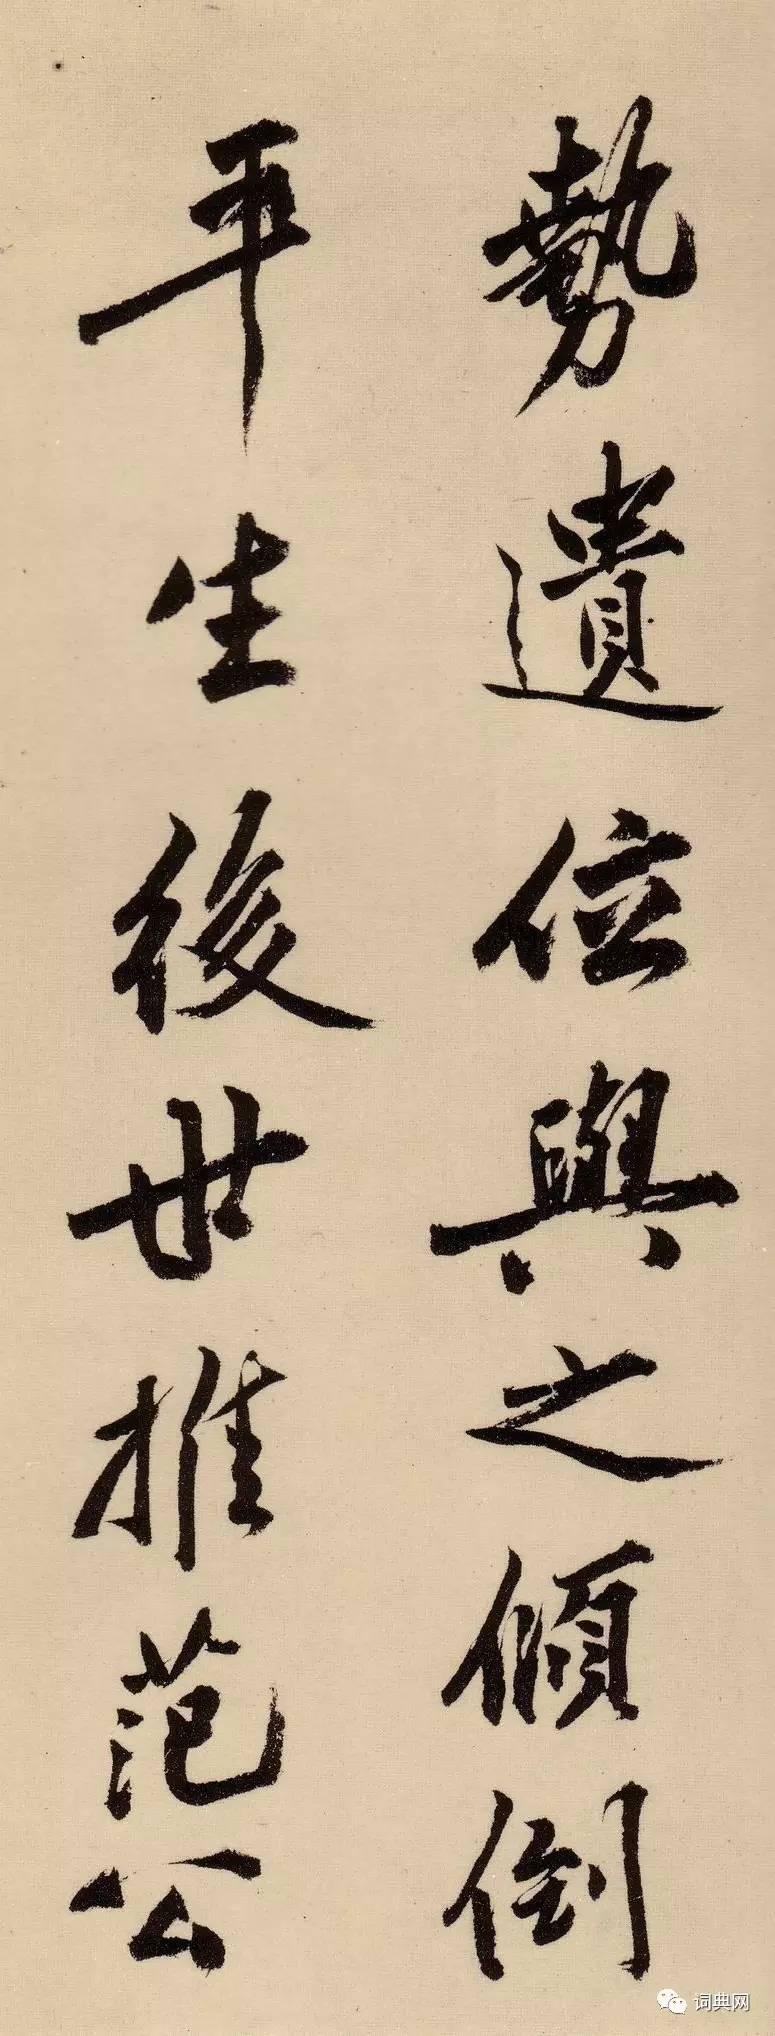 勢遺位與之傾倒
平生後世推范公
词典网